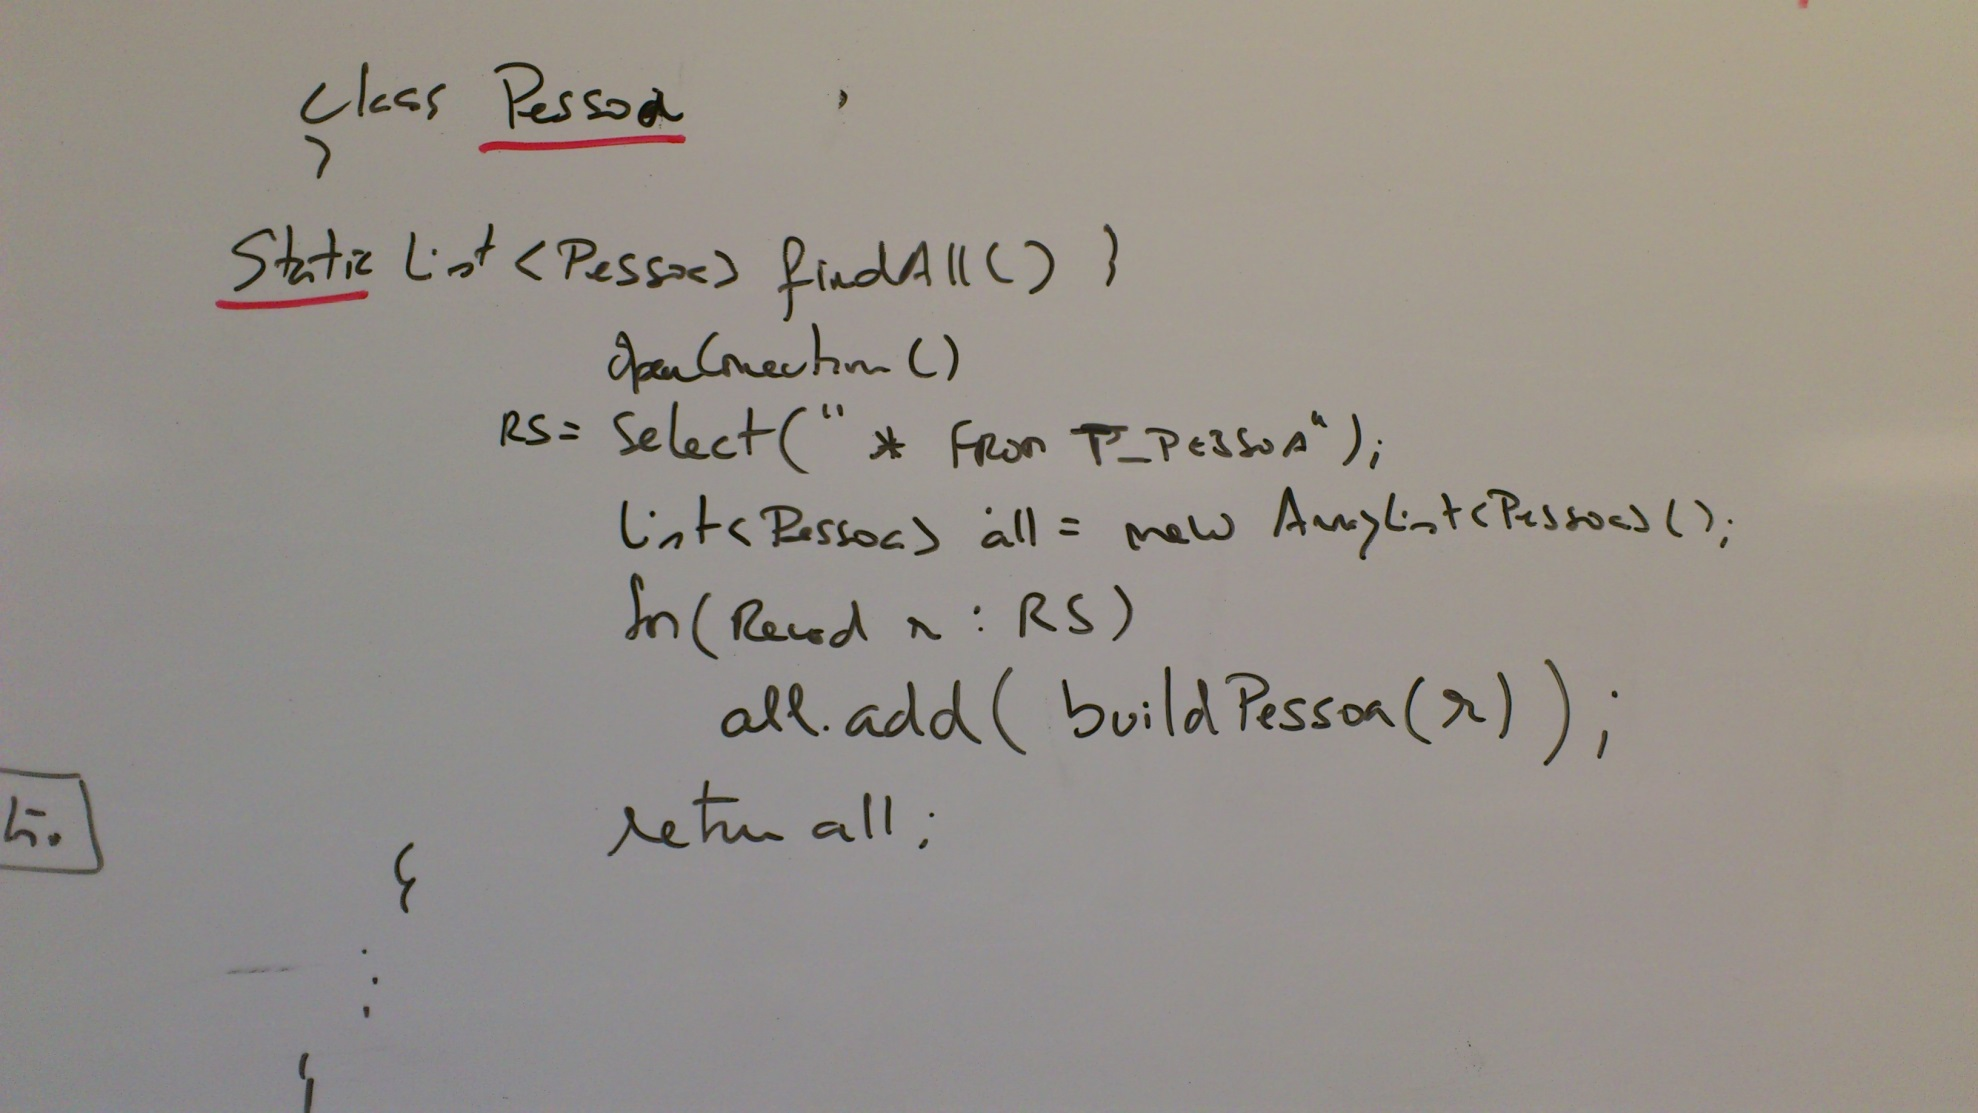 class Pessoa
}
Static List<Pessoa> findAll() }
openConnection()
RS= Select("* FROM T_PESSOA");
List<Pessoa> all = new ArrayList<Pessoa>();
for(Record r : RS)
all.add( buildPessoa(r) );
return all;
{
:
{